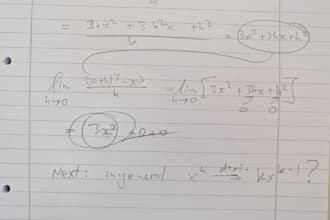 = 3hx² + 3h²x + h³ / h = 3x² + 3hx + h²
lim h→0 (x+h)³-x³ / h = lim h→0 [3x² + 3hx + h²]
0 0
= 3x² +0+0
Next: in general x^k deriv→ kx^k-1 ?